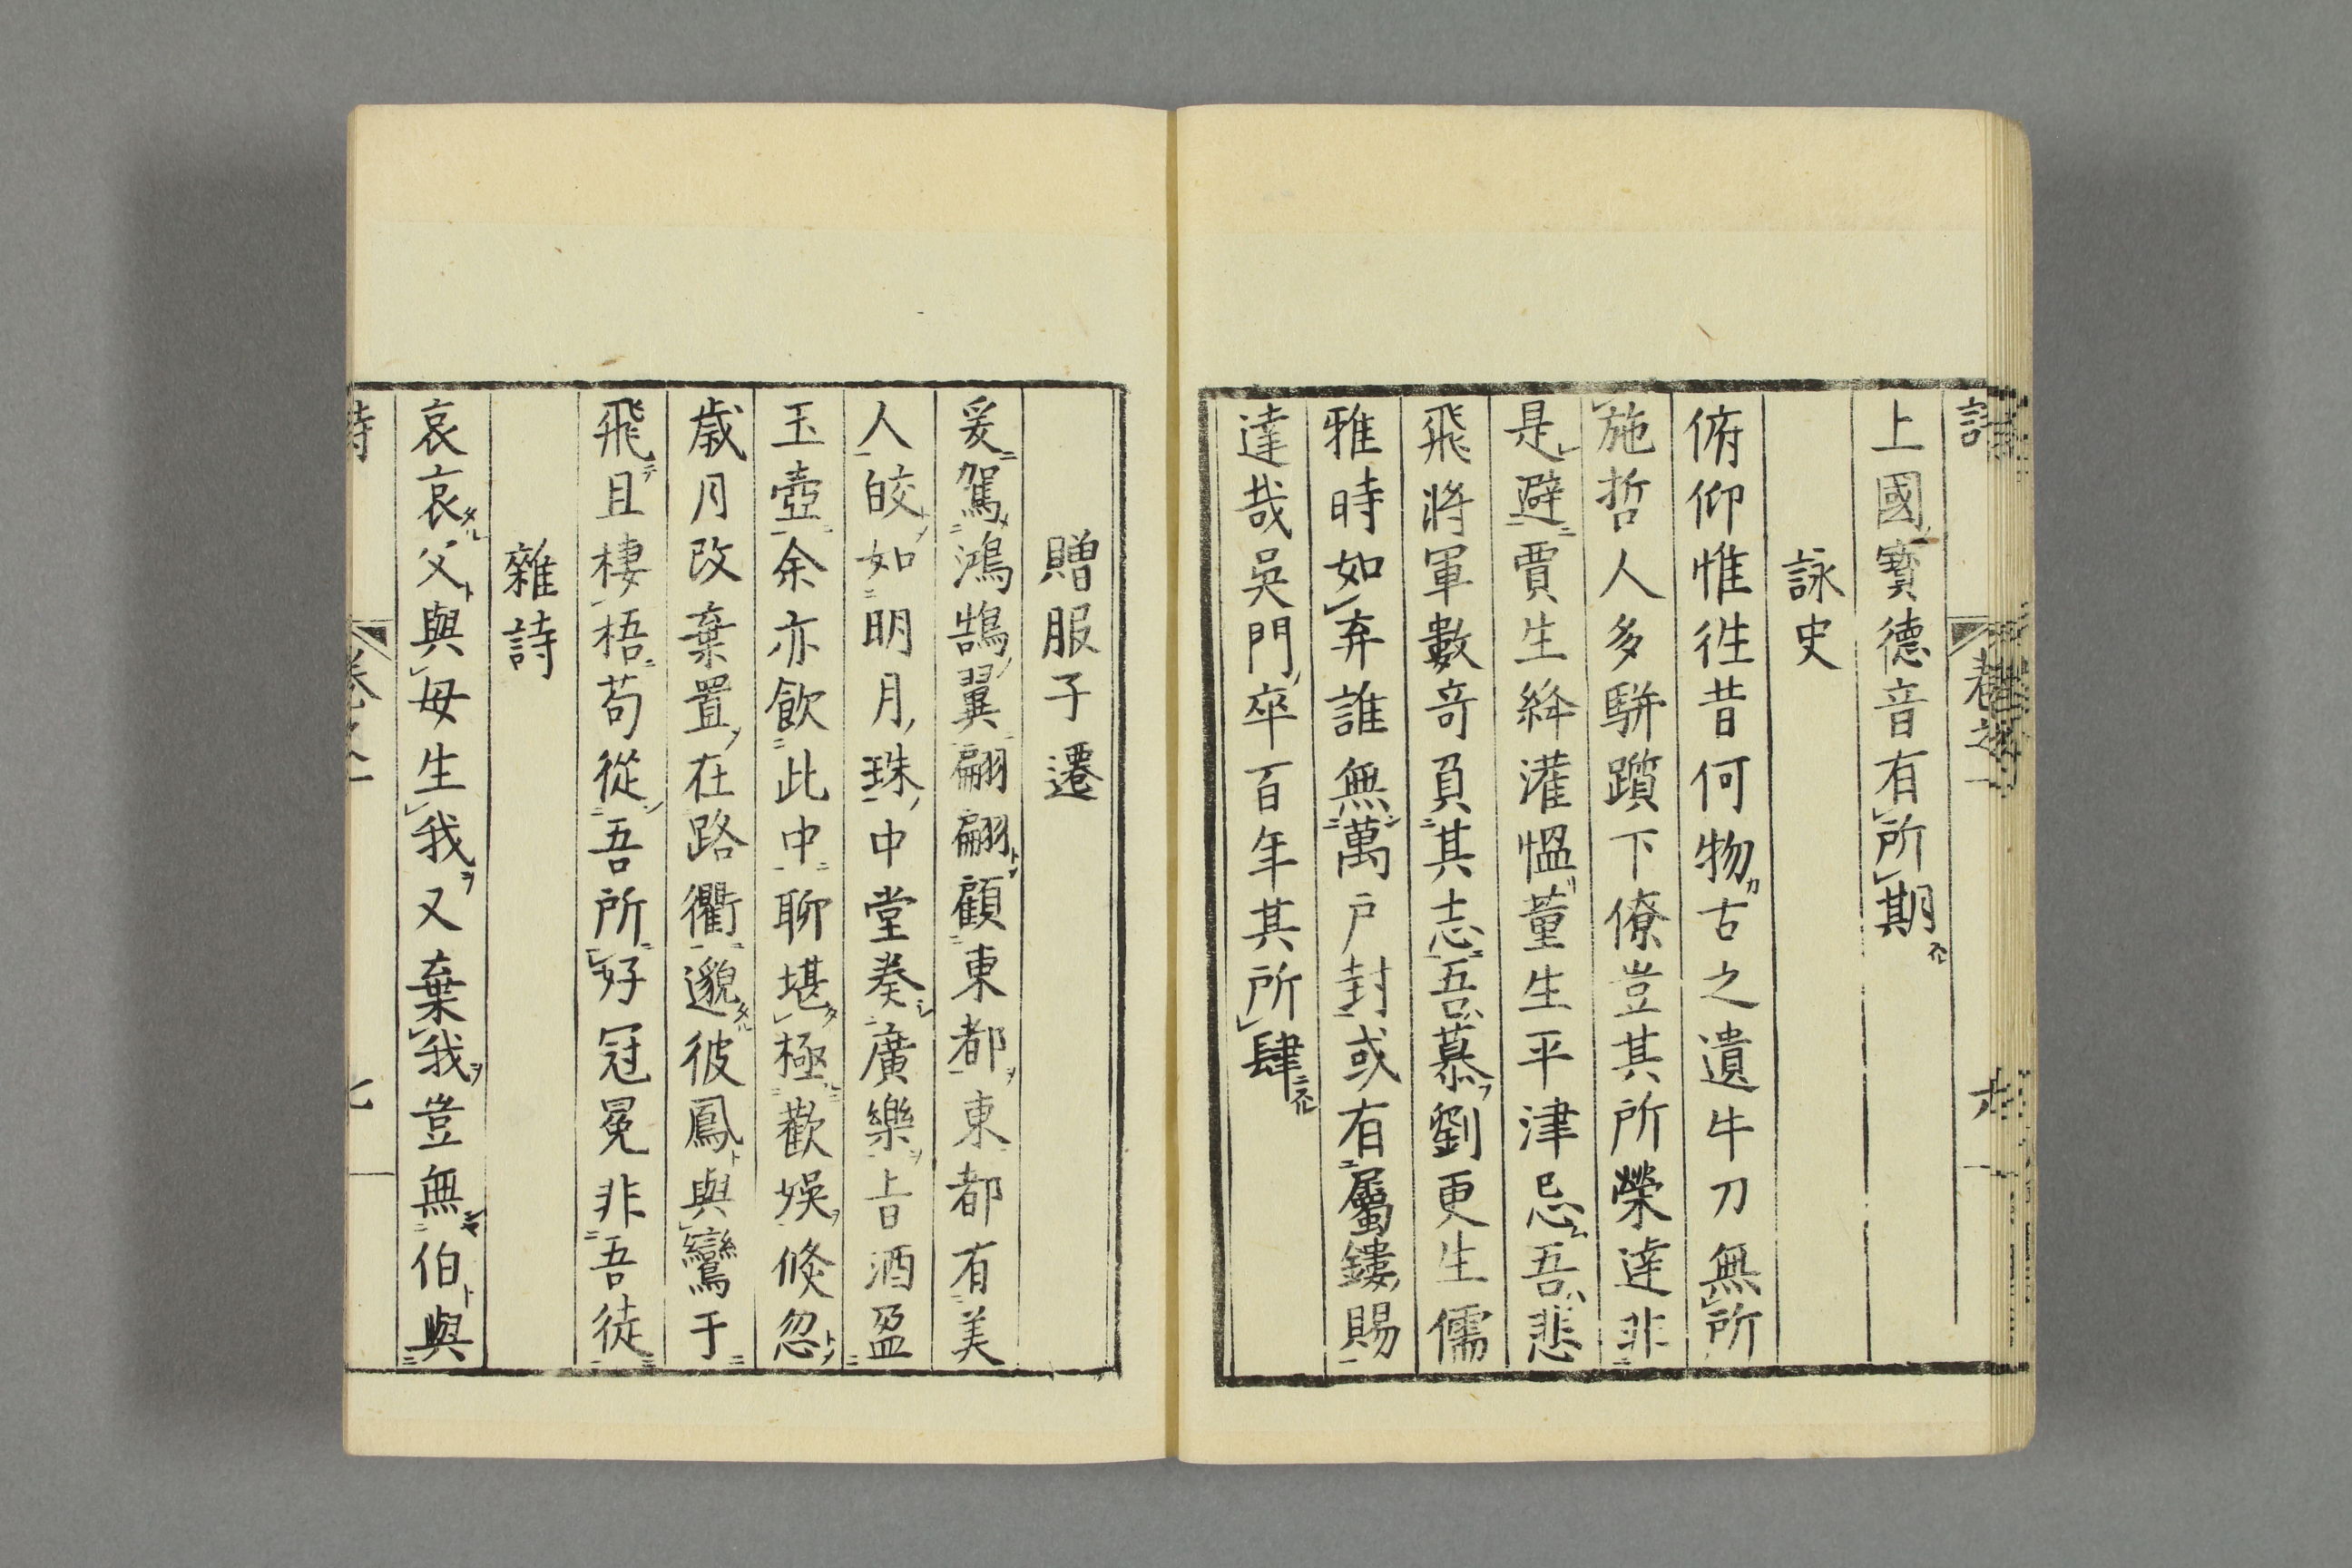 上國寶德音有所期
詠史
俯仰惟徃昔何物古之遺牛刀無所
施哲人多駢躓下僚豈其所榮達非
是避賈生絳灌慍董生平津忌吾悲
飛將軍數奇負其志吾慕劉更生儒
雅時如弃誰無萬戸封或有屬鏤賜
達哉吳門卒百年其所肆
贈服子遷
爰駕鴻鵠翼翩翩顧東都東都有美
人皎如明月珠中堂奏廣樂㫖酒盈
玉壺余亦飲此中聊堪極歡娛倏忽
歳月改棄置在路衢邈彼鳳與鸞于
飛且棲梧苟從吾所好冠冕非吾徒
雜詩
哀哀父與母生我又棄我豈無伯與
詩 卷之一 七